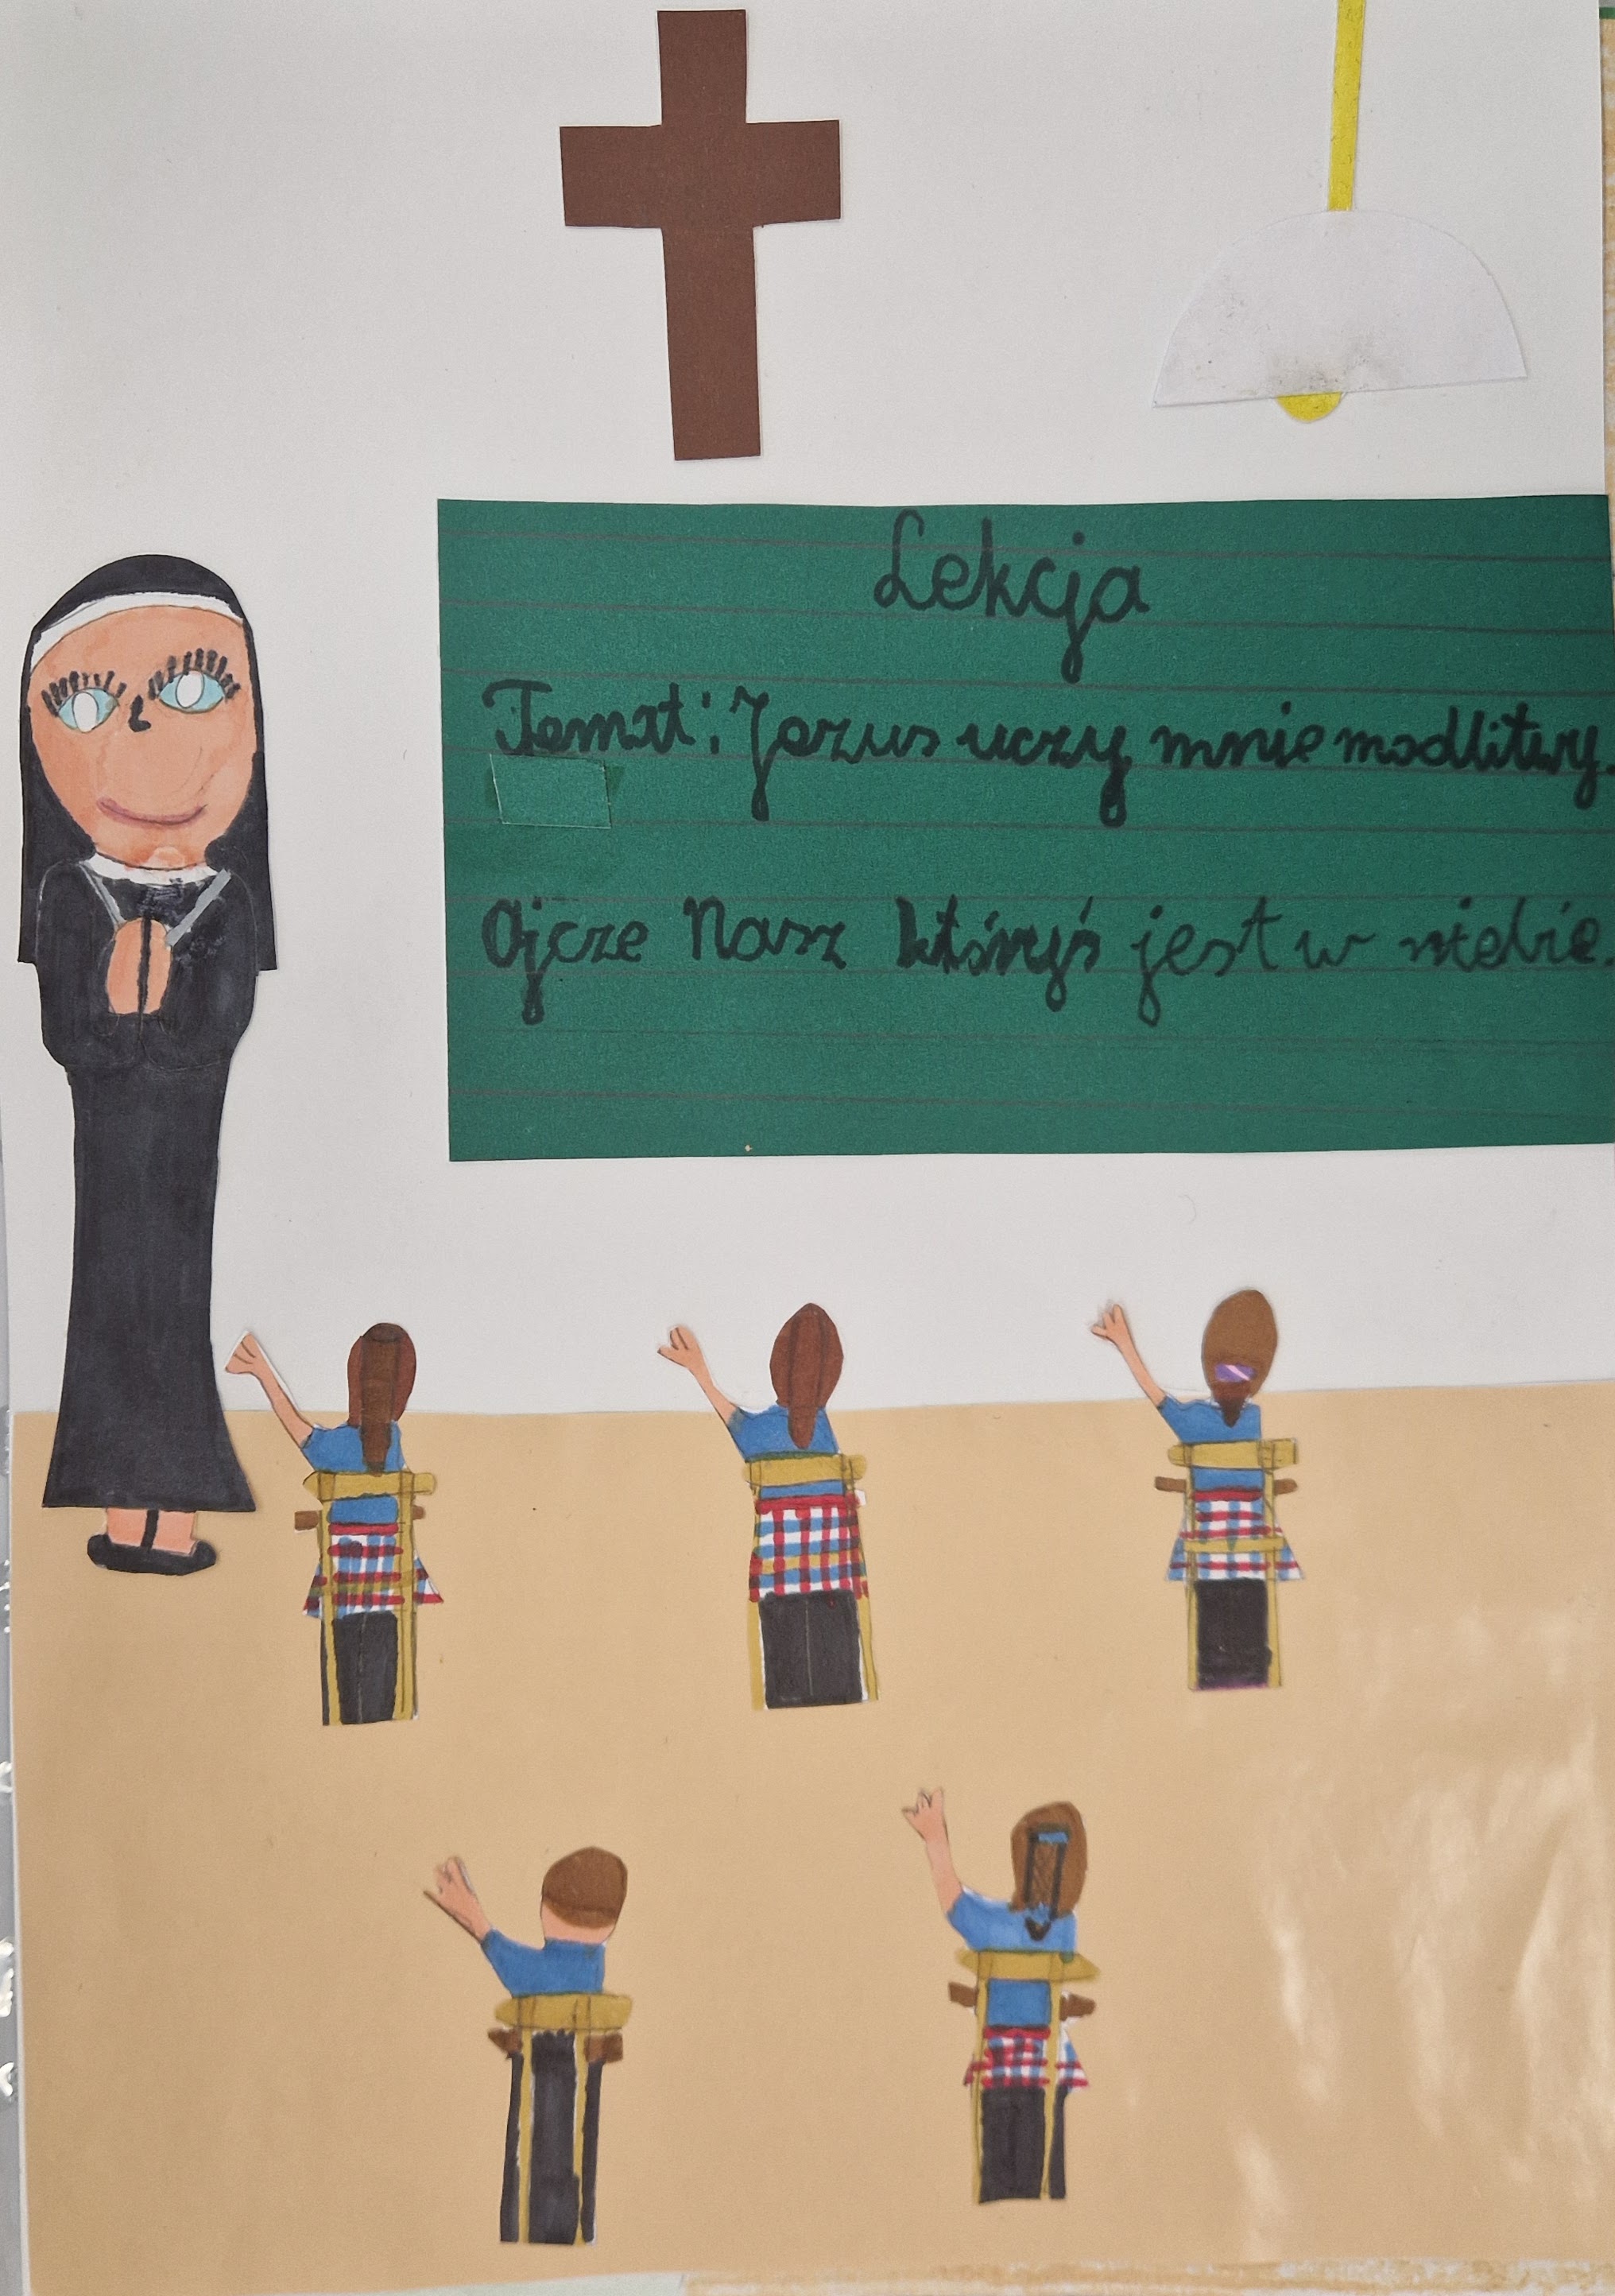 Lekcja
Temat: Jezus uczy mnie modlitwy.
Ojcze Nasz któryś jest w niebie.